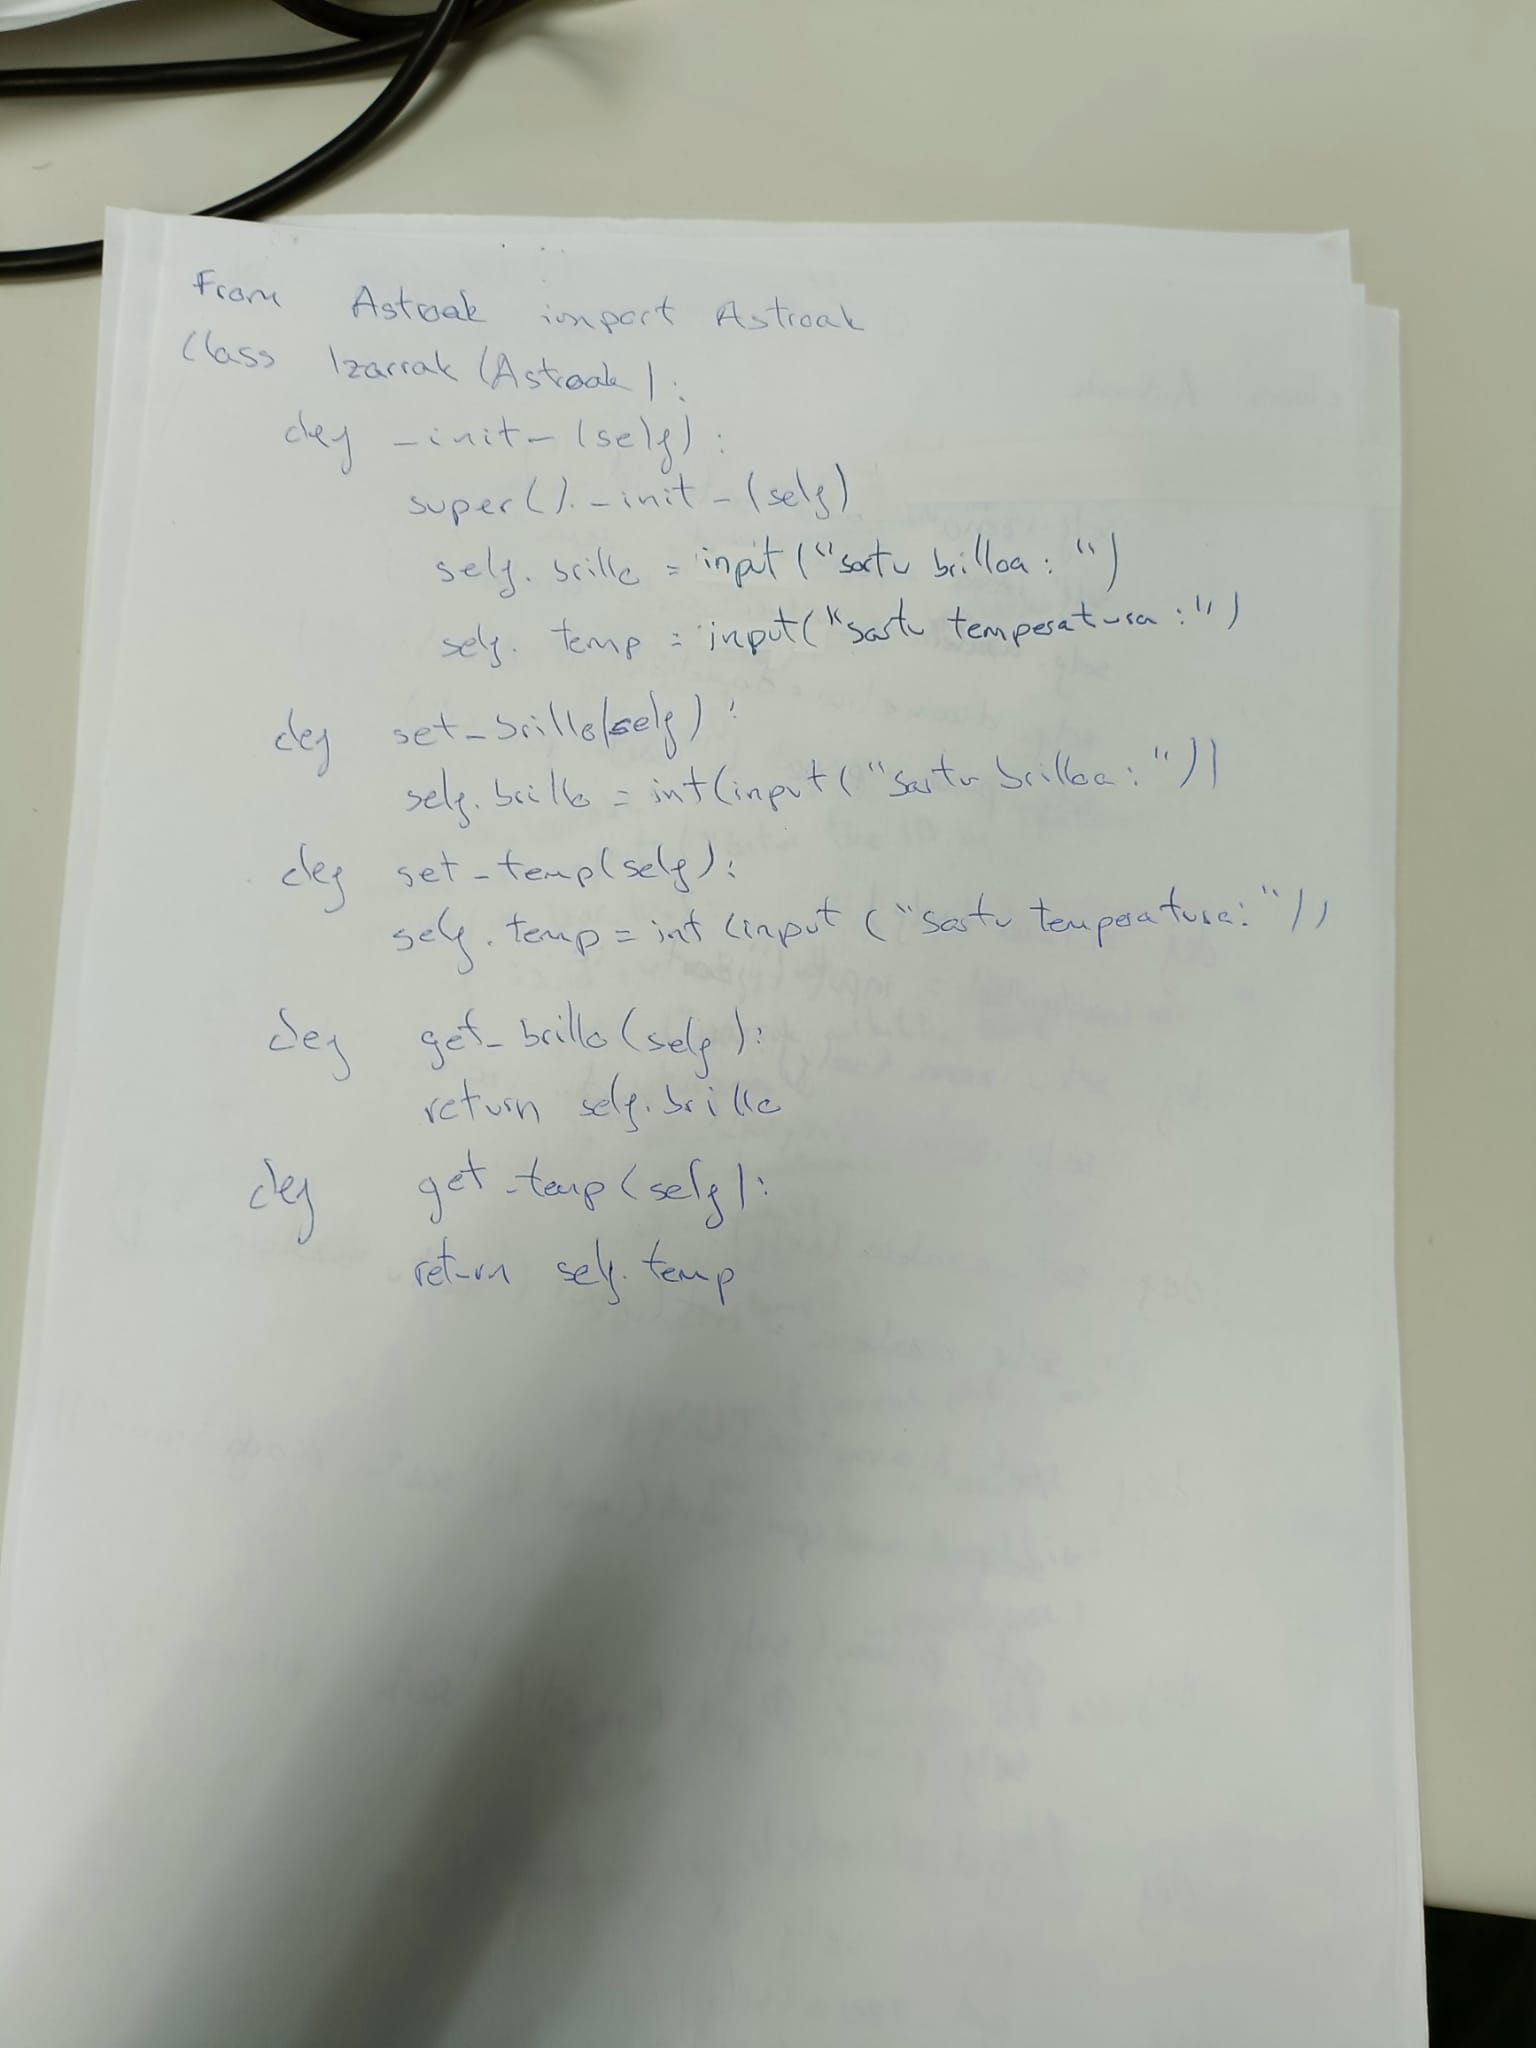 From Astroak import Astroak
Class Izarrak (Astroak):
def _init_ (self):
super()._init_(self)
self.brillo = input ("sartu brilloa: ")
self.temp = input("sartu temperatura: ")
def set_brillo(self):
self.brillo = int(input("sartu brilloa: "))
def set_temp(self):
self.temp = int (input ("sartu temperatura: "))
def get_brillo(self):
return self.brillo
def get_temp(self):
return self.temp